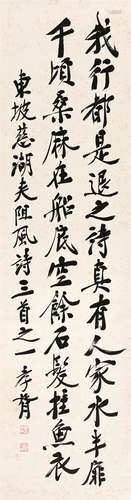 我行都是退之詩真有人家水半扉
千頃桑麻在船底空餘石髮挂魚衣
東坡慈湖夾阻風詩三首之一 孝胥